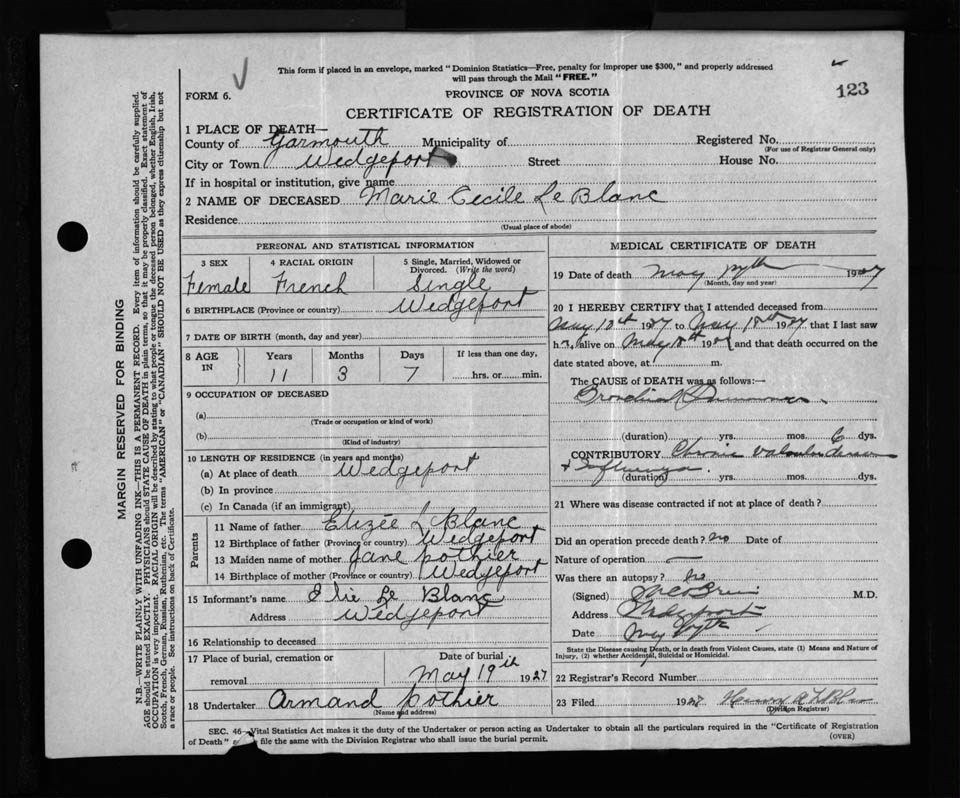 This form if placed in an envelope, marked "Dominion Statistics—Free, penalty for improper use $300," and properly addressed
will pass through the Mail "FREE."
123
FORM 6.
PROVINCE OF NOVA SCOTIA
CERTIFICATE OF REGISTRATION OF DEATH
1 PLACE OF DEATH—
County of Yarmouth Municipality of Registered No.
(For use of Registrar General only)
City or Town Wedgeport Street House No.
If in hospital or institution, give name
2 NAME OF DECEASED Marie Cecile Le Blanc
Residence
(Usual place of abode)
PERSONAL AND STATISTICAL INFORMATION
3 SEX 4 RACIAL ORIGIN 5 Single, Married, Widowed or
Divorced. (Write the word)
Female French Single
6 BIRTHPLACE (Province or country) Wedgeport
7 DATE OF BIRTH (month, day and year)
8 AGE IN Years Months Days If less than one day,
11 3 7 hrs. or min.
9 OCCUPATION OF DECEASED
(a)
(Trade or occupation or kind of work)
(b)
(Kind of industry)
10 LENGTH OF RESIDENCE (in years and months)
(a) At place of death Wedgeport
(b) In province
(c) In Canada (if an immigrant)
Parents
11 Name of father Elizée LeBlanc
12 Birthplace of father (Province or country) Wedgeport
13 Maiden name of mother Jane pothier
14 Birthplace of mother (Province or country) Wedgeport
15 Informant's name Elie Le Blanc
Address Wedgeport
16 Relationship to deceased
17 Place of burial, cremation or Date of burial
removal May 19th 1927
18 Undertaker Armand pothier
(Name and address)
MEDICAL CERTIFICATE OF DEATH
19 Date of death May 1927
(Month, day and year)
20 I HEREBY CERTIFY that I attended deceased from
May 1927 to May 1927 that I last saw
h alive on May 192 and that death occurred on the
date stated above, at m.
The CAUSE of DEATH was as follows:—
Bronchial Pneumonia
(duration) yrs. mos. 6 dys.
CONTRIBUTORY Chronic Valvular Disease
+ Influenza.
(duration) yrs. mos. dys.
21 Where was disease contracted if not at place of death?
Did an operation precede death? No Date of
Nature of operation —
Was there an autopsy? No
(Signed) M.D.
Address Wedgeport
Date May
State the Disease causing Death, or in death from Violent Causes, state (1) Means and Nature of
Injury, (2) whether Accidental, Suicidal or Homicidal.
22 Registrar's Record Number
23 Filed 192
(Division Registrar)
SEC. 46—Vital Statistics Act makes it the duty of the Undertaker or person acting as Undertaker to obtain all the particulars required in the "Certificate of Registration
of Death" file the same with the Division Registrar who shall issue the burial permit.
(OVER)
MARGIN RESERVED FOR BINDING
N.B.—WRITE PLAINLY WITH UNFADING INK—THIS IS A PERMANENT RECORD. Every item of information should be carefully supplied.
AGE should be stated EXACTLY. PHYSICIANS should STATE CAUSE OF DEATH in plain terms, so that it may be properly classified. Exact statement of
OCCUPATION is very important. RACIAL ORIGIN will be described by stating to what people or tongue the deceased person belonged, whether English, Irish,
Scotch, French, German, Russian, Ruthenian, etc. The terms "AMERICAN" or "CANADIAN" SHOULD NOT BE USED as they express citizenship but not
a race or people. See instructions on back of Certificate.